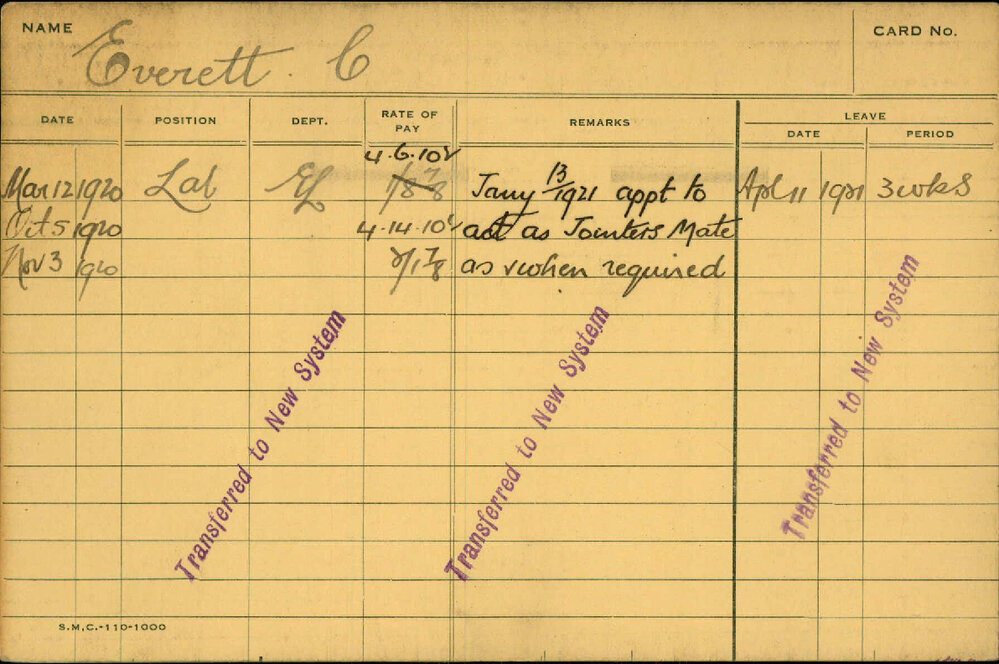 NAME
Everett. C
CARD No.
DATE
POSITION
DEPT.
RATE OF PAY
REMARKS
LEAVE
DATE
PERIOD
4.6.10½
Mar 12 1920 Lab EL 1/8⅞ Jany 13/1921 appt to Apl 11 1921 3 wks
Oct 5 1920 4.14.10½ act as Jointers Mate
Nov 3 1920 2/1⅞ as when required
Transferred to New System
Transferred to New System
Transferred to New System
S.M.C.-110-1000